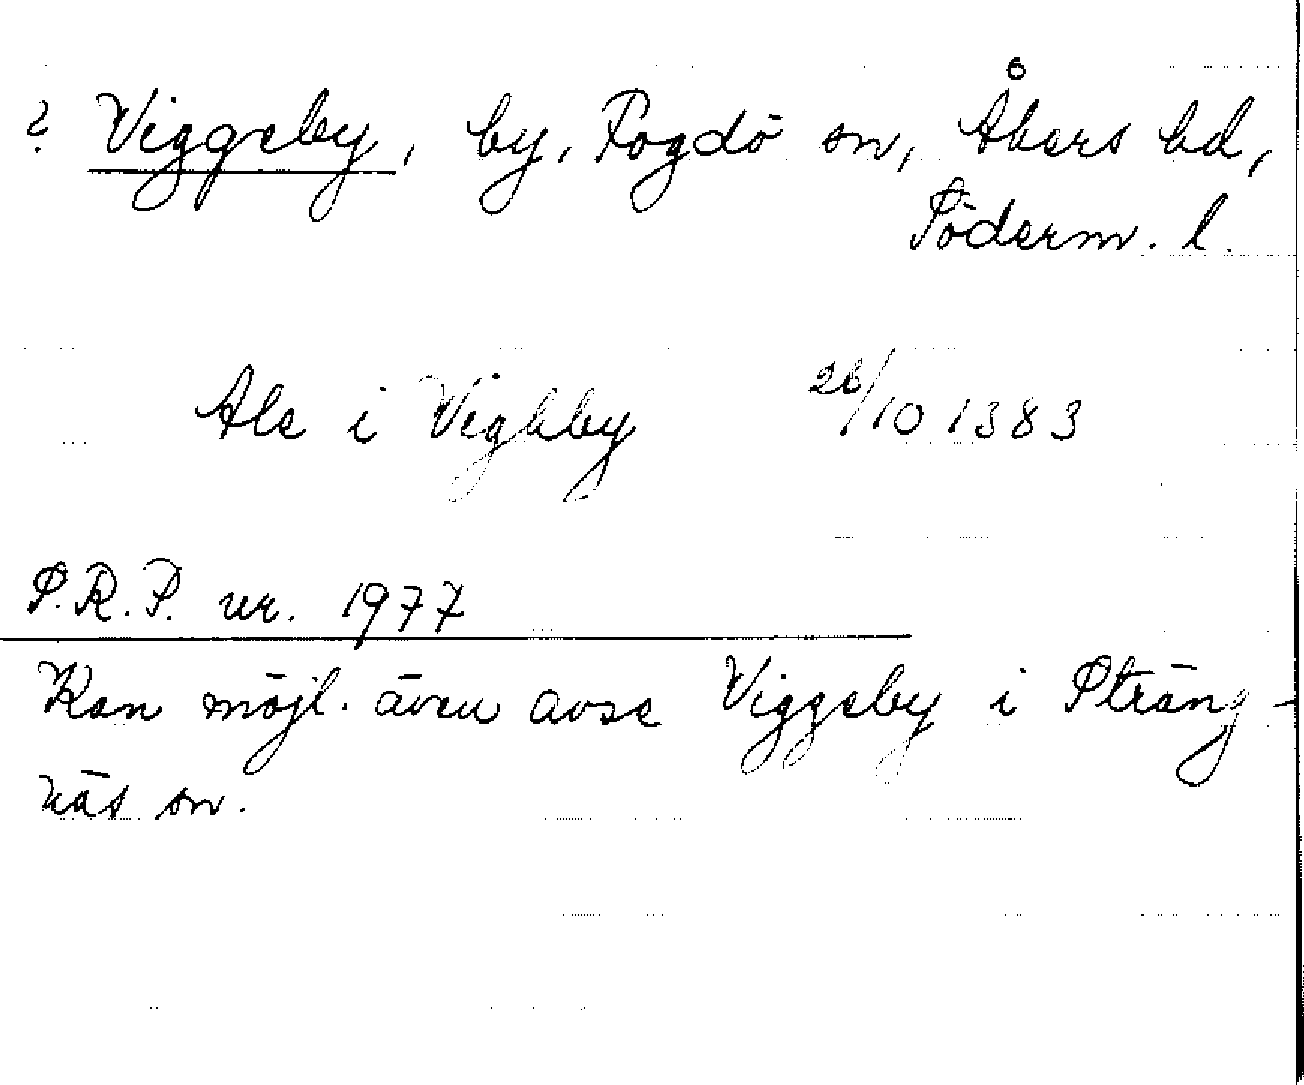 ? Viggeby, by, Fogdö sn, Åkers hd,
Söderm. l.
Ale i Vighby 26/10 1383
S.R.P. nr. 1977
Kan möjl. även avse Viggeby i Sträng-
näs sn.